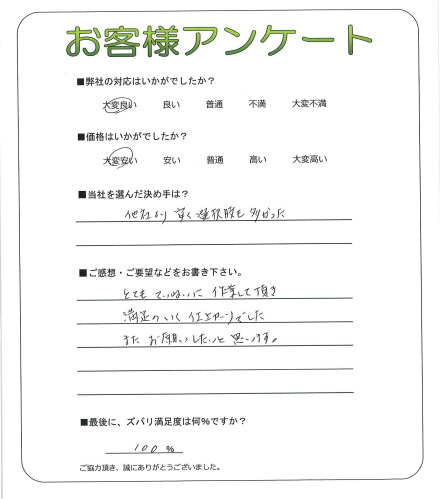 お客様アンケート
■弊社の対応はいかがでしたか？
大変良い 良い 普通 不満 大変不満
■価格はいかがでしたか？
大変安い 安い 普通 高い 大変高い
■当社を選んだ決め手は？
他社より安く選択肢も多かった
■ご感想・ご要望などをお書き下さい。
とても ていねいに 作業して頂き
満足のいく 仕上がりでした
また お願いしたいと 思います。
■最後に、ズバリ満足度は何%ですか？
100 %
ご協力頂き、誠にありがとうございました。